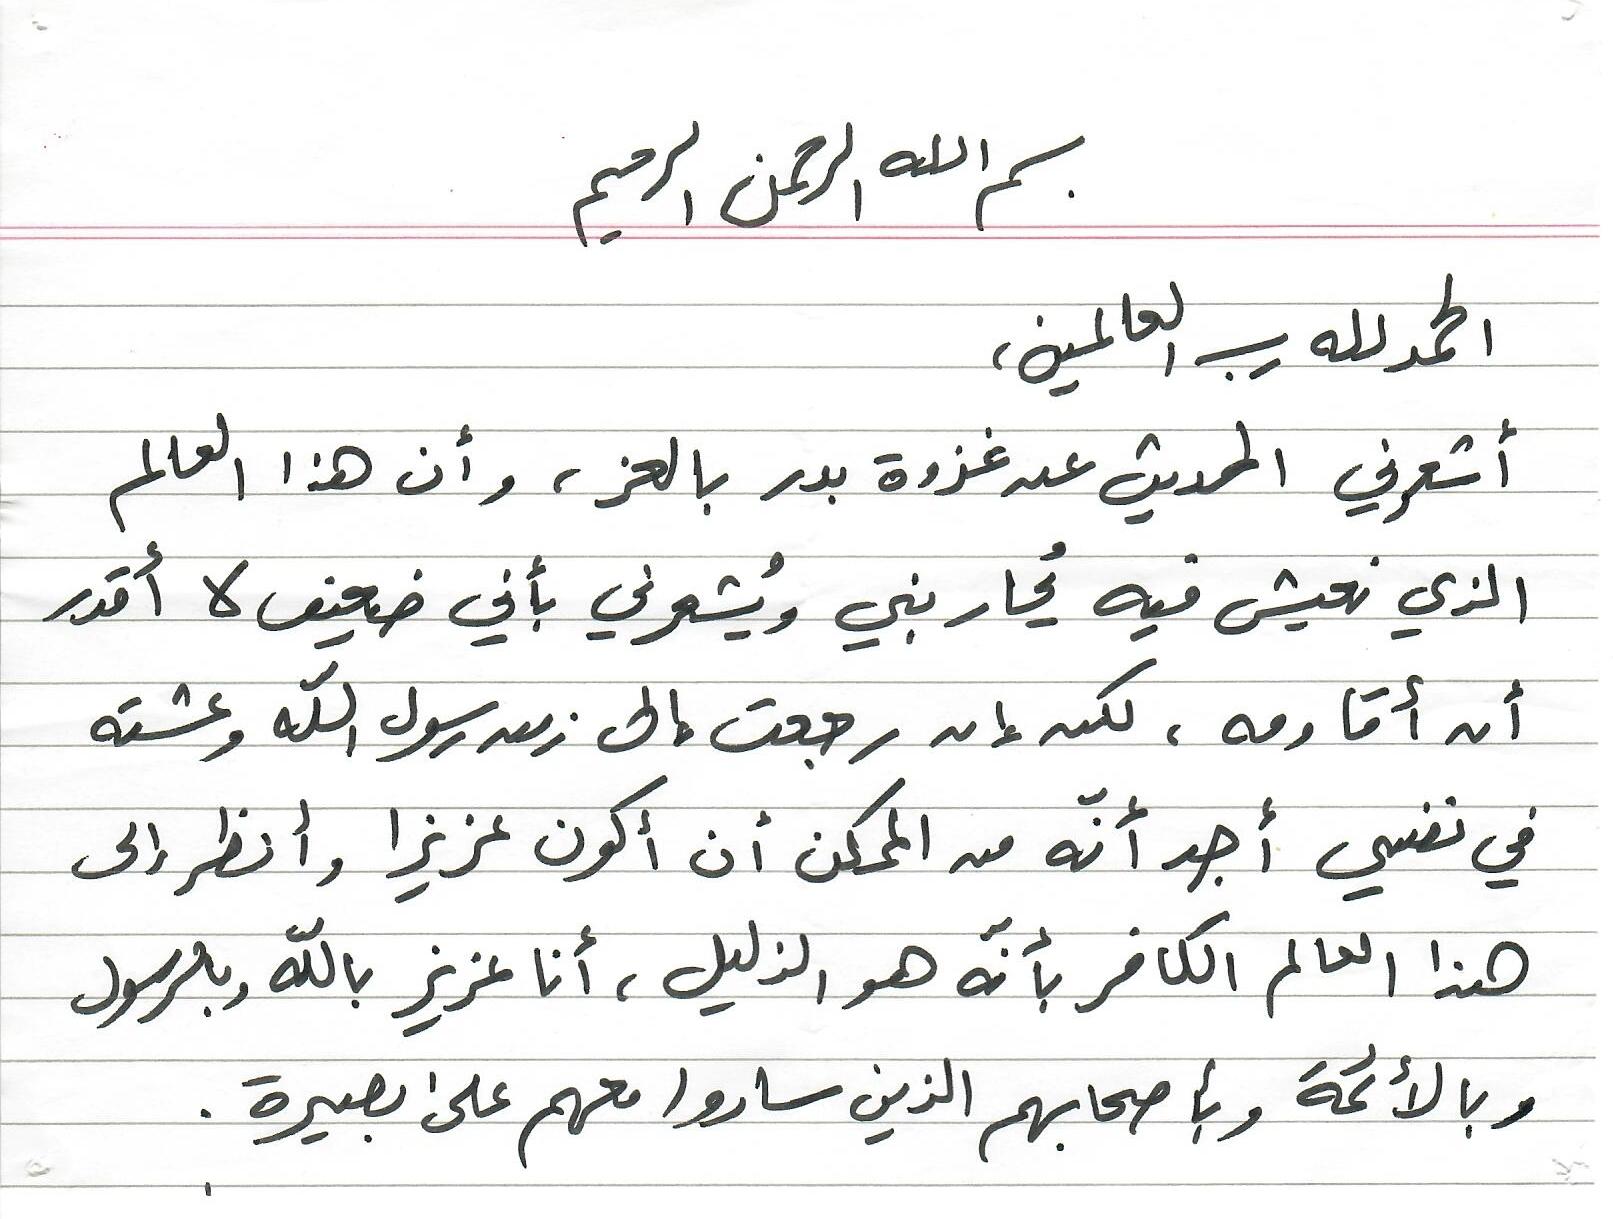 بسم الله الرحمن الرحيم
الحمد لله رب العالمين،
أشعرني الحديث عن غزوة بدر بالعز، وأن هذا العالم
الذي نعيش فيه يُحاربني ويُشعرني بأني ضعيف لا أقدر
أن أقاومه، لكن إن رجعت إلى زمن رسول اللّه وعشته
في نفسي أجد أنّه من الممكن أن أكون عزيزا وأنظر إلى
هذا العالم الكافر بأنّه هو الذليل، أنا عزيز باللّه وبالرسول
وبالأئمة وبأصحابهم الذين ساروا معهم على بصيرة.